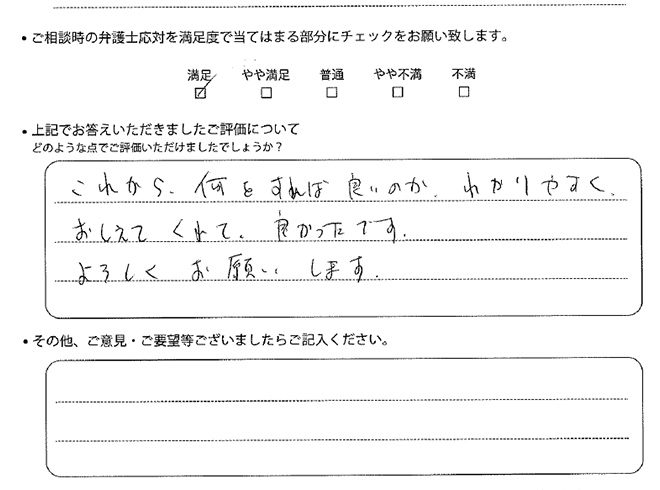 ・ご相談時の弁護士応対を満足度で当てはまる部分にチェックをお願い致します。
満足 やや満足 普通 やや不満 不満
☑ □ □ □ □
・上記でお答えいただきましたご評価について
どのような点でご評価いただけましたでしょうか？
これから、何をすれば良いのか、わかりやすく、
おしえてくれて、良かったです。
よろしくお願いします。
・その他、ご意見・ご要望等ございましたらご記入ください。